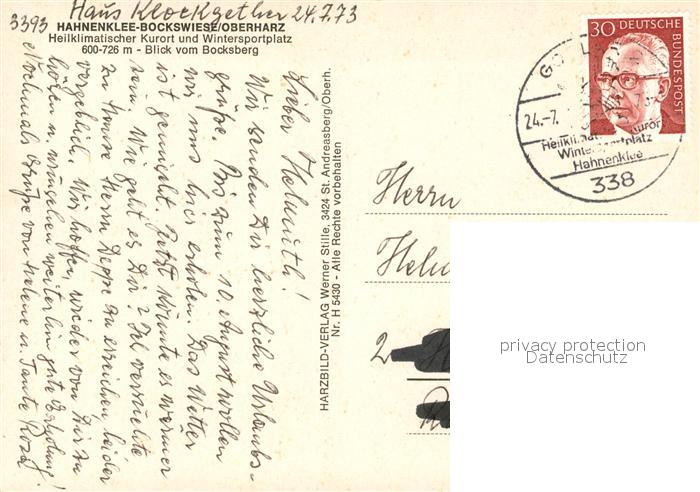 3393 Haus Klockgether 24.7.73
HAHNENKLEE-BOCKSWIESE/OBERHARZ
Heilklimatischer Kurort und Wintersportplatz
600-726 m - Blick vom Bocksberg
Lieber Helmuth!
Wir senden Dir herzliche Urlaubs-
grüße. Bis zum 10. August wollen
wir uns hier erholen. Das Wetter
ist gemischt. Jetzt könnte es wärmer
sein. Wie geht es Dir? Ich versuchte
zu Hause Herrn Deppe zu erreichen leider
vergeblich. Wir hoffen, wieder von Dir zu
hören u. wünschen weiterhin gute Erholung!
Nochmals Grüße von Helene u. Tante Rosa
HARZBILD-VERLAG Werner Stille, 3424 St. Andreasberg/Oberh.
Nr. H 5430 - Alle Rechte vorbehalten
30 DEUTSCHE BUNDESPOST
24.-7.
Heilklimat Kurort
Wintersportplatz
Hahnenklee
338
Herrn
Helm
2
privacy protection
Datenschutz